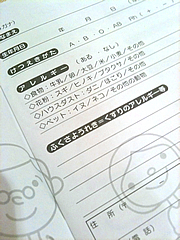 ガナ)
なまえ
生年月日 年 月
けつえきがた A・B・O・AB Rh(+・-
アレルギー (ある・なし)
◇食物:牛乳/卵/大豆/米/小麦/その他
◇花粉:スギ/ヒノキ/ブタクサ/その他
◇ハウスダスト:ダニ/ほこり/その他
◇ペット:イヌ/ネコ/その他の動物
ふくさようれき=くすりのアレルギー等
住所(〒
電話)